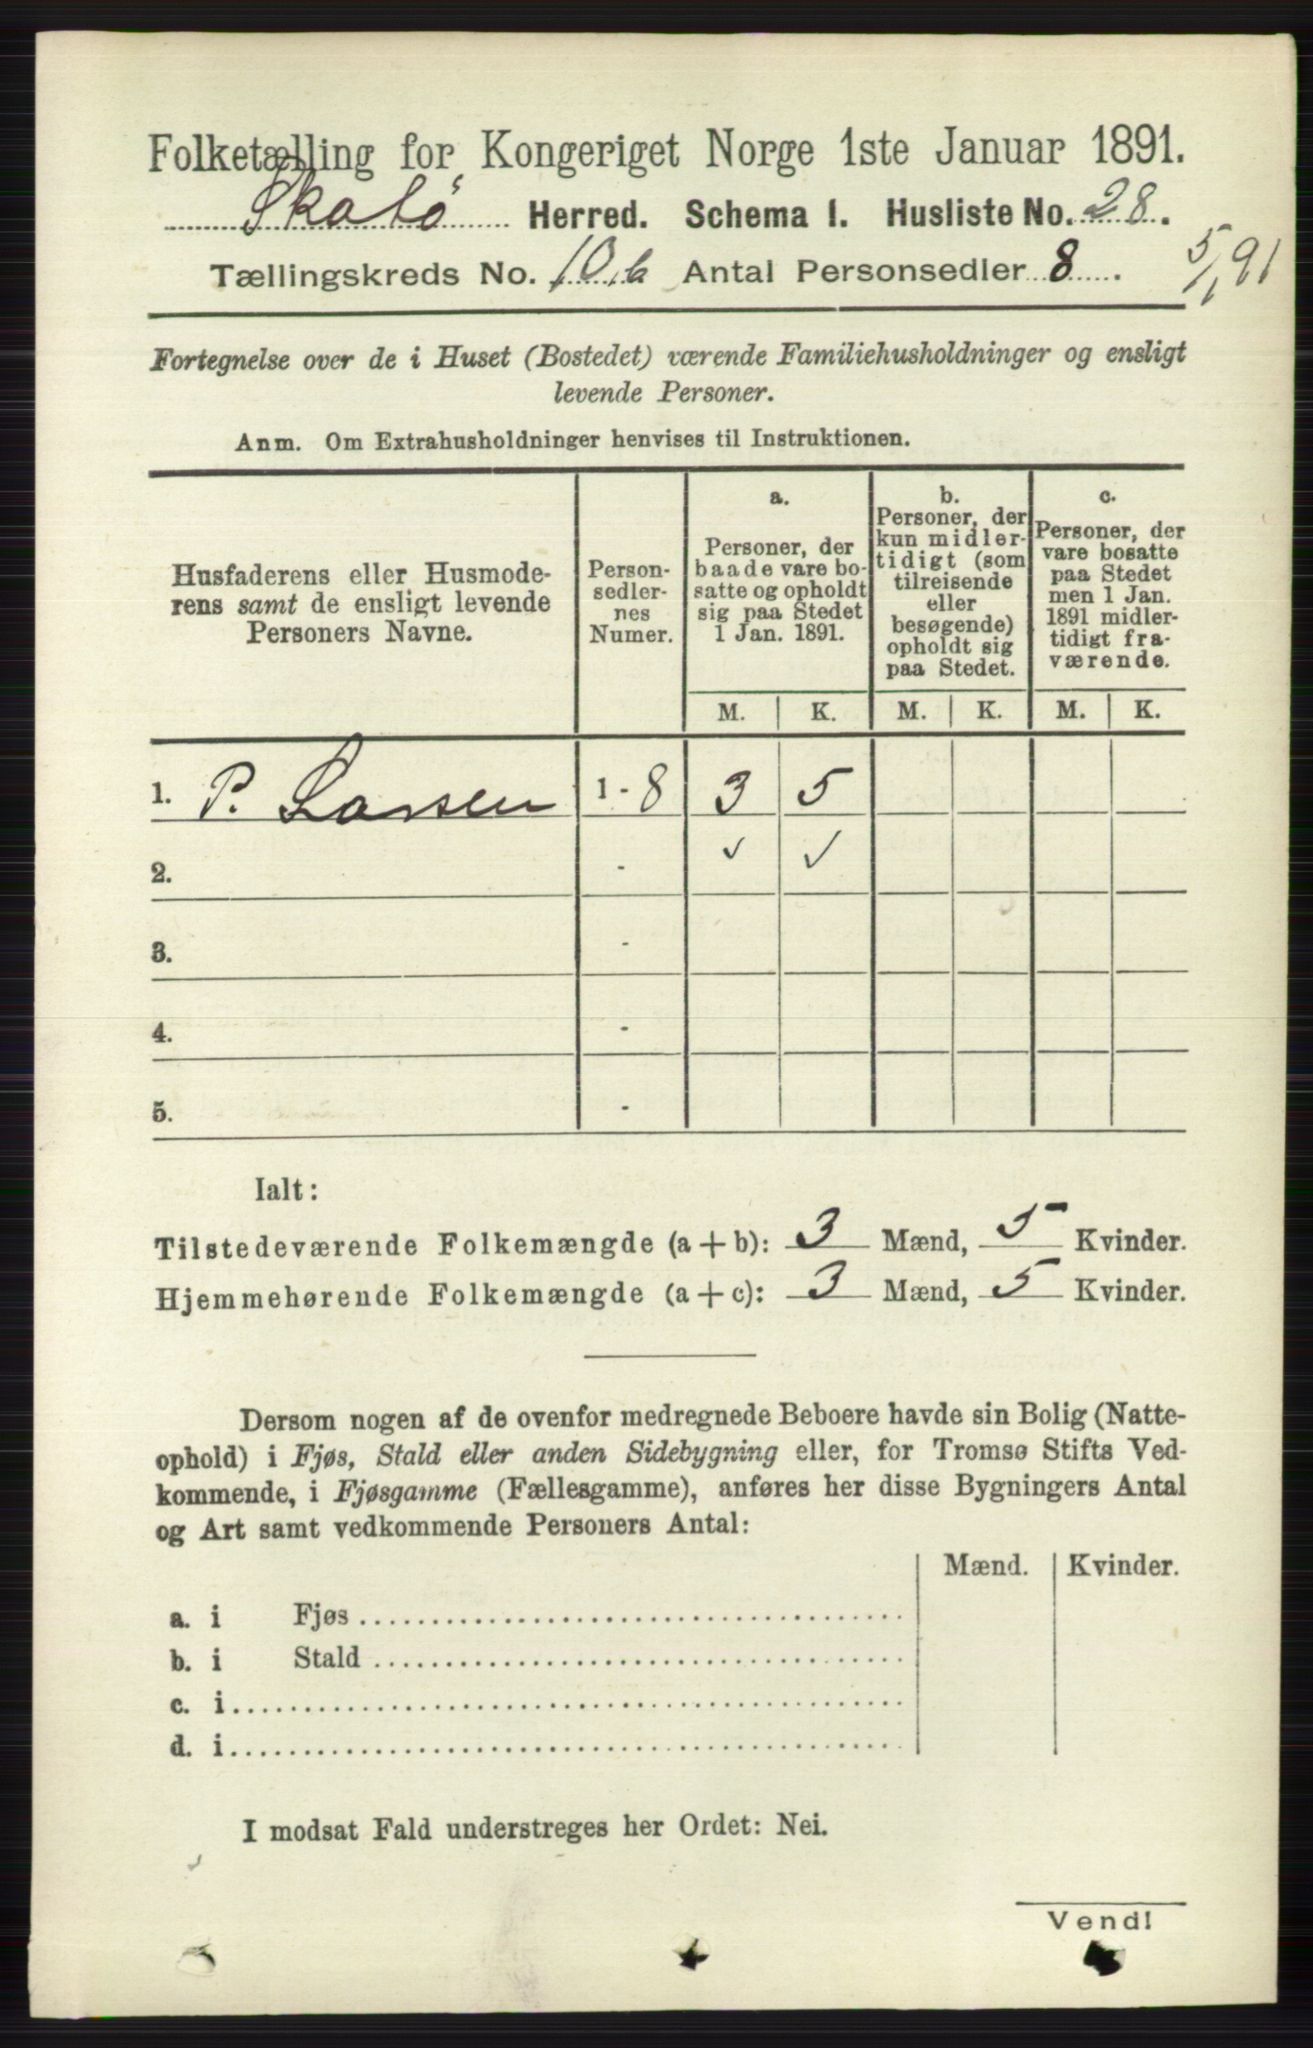 Folketælling for Kongeriget Norge 1ste Januar 1891.
Skatö Herred. Schema 1. Husliste No. 28.
Tællingskreds No. 10 b Antal Personsedler 8.
5/1 91
Fortegnelse over de i Huset (Bostedet) værende Familiehusholdninger og ensligt
levende Personer.
Anm. Om Extrahusholdninger henvises til Instruktionen.
Husfaderens eller Husmode-
rens samt de ensligt levende
Personers Navne.
Person-
sedler-
nes
Numer.
a.
Personer, der
baade vare bo-
satte og opholdt
sig paa Stedet
1 Jan. 1891.
b.
Personer, der
kun midler-
tidigt (som
tilreisende
eller
besøgende)
opholdt sig
paa Stedet.
c.
Personer, der
vare bosatte
paa Stedet
men 1 Jan.
1891 midler-
tidigt fra-
værende.
M. K. M. K. M. K.
1. P. Larsen 1 - 8 3 5
2. - ✓ ✓
3. -
4. -
5. -
Ialt:
Tilstedeværende Folkemængde (a + b): 3 Mænd, 5 Kvinder.
Hjemmehørende Folkemængde (a + c): 3 Mænd, 5 Kvinder.
Dersom nogen af de ovenfor medregnede Beboere havde sin Bolig (Natte-
ophold) i Fjøs, Stald eller anden Sidebygning eller, for Tromsø Stifts Ved-
kommende, i Fjøsgamme (Fællesgamme), anføres her disse Bygningers Antal
og Art samt vedkommende Personers Antal:
Mænd. Kvinder.
a. i Fjøs
b. i Stald
c. i
d. i
I modsat Fald understreges her Ordet: Nei.
Vend!